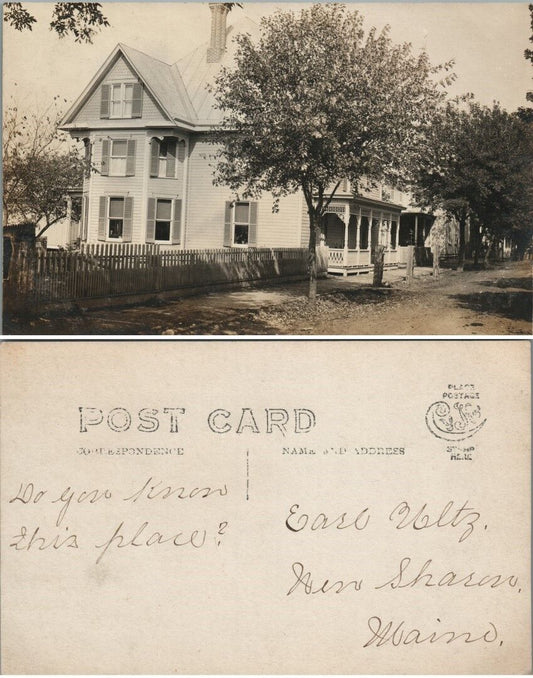 POST CARD
CORRESPONDENCE
NAME AND ADDRESS
PLACE
POSTAGE
STAMP
HERE
Do you know
this place?
Earl Ultz.
New Sharon,
Maine.